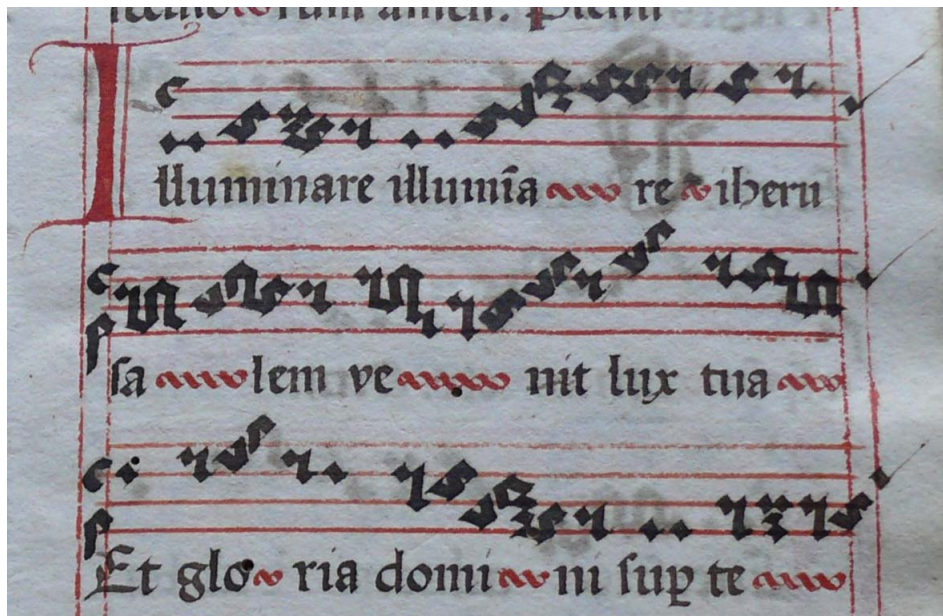 amen.
Illuminare illumīa re iheru
sa lem ve nit lux tua
Et glo ria domi ni suꝑ te